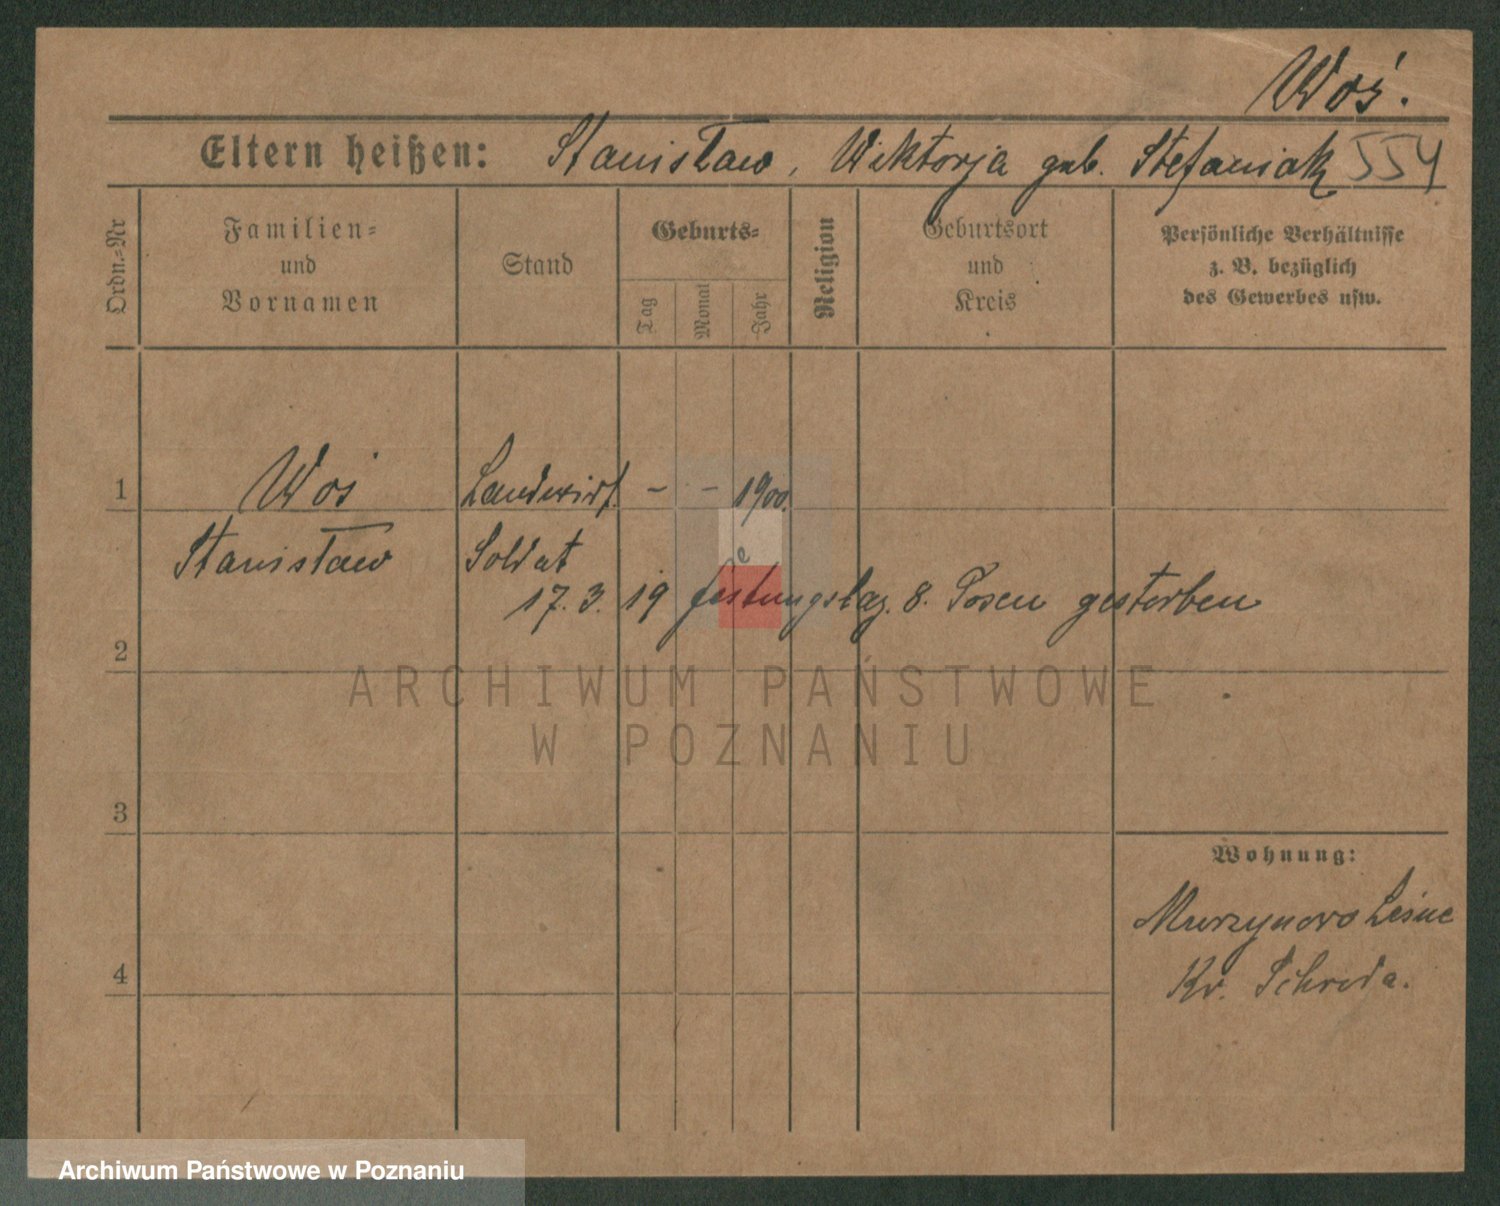 Woś.
Eltern heißen: Stanisław, Wiktorja geb. Stefaniak 554
Ordn.-Nr
Familien-
und
Vornamen
Stand
Geburts-
Tag
Monat
Jahr
Religion
Geburtsort
und
Kreis
Persönliche Verhältnisse
z. B. bezüglich
des Gewerbes usw.
1 Woś Landwirt - - 1900.
Stanisław Soldat
17. 3. 19 Festungslaz. 8. Posen gestorben
2
ARCHIWUM PAŃSTWOWE
W POZNANIU
3
Wohnung:
Murzynowo Leśne
4 Kr. Schroda.
Archiwum Państwowe w Poznaniu